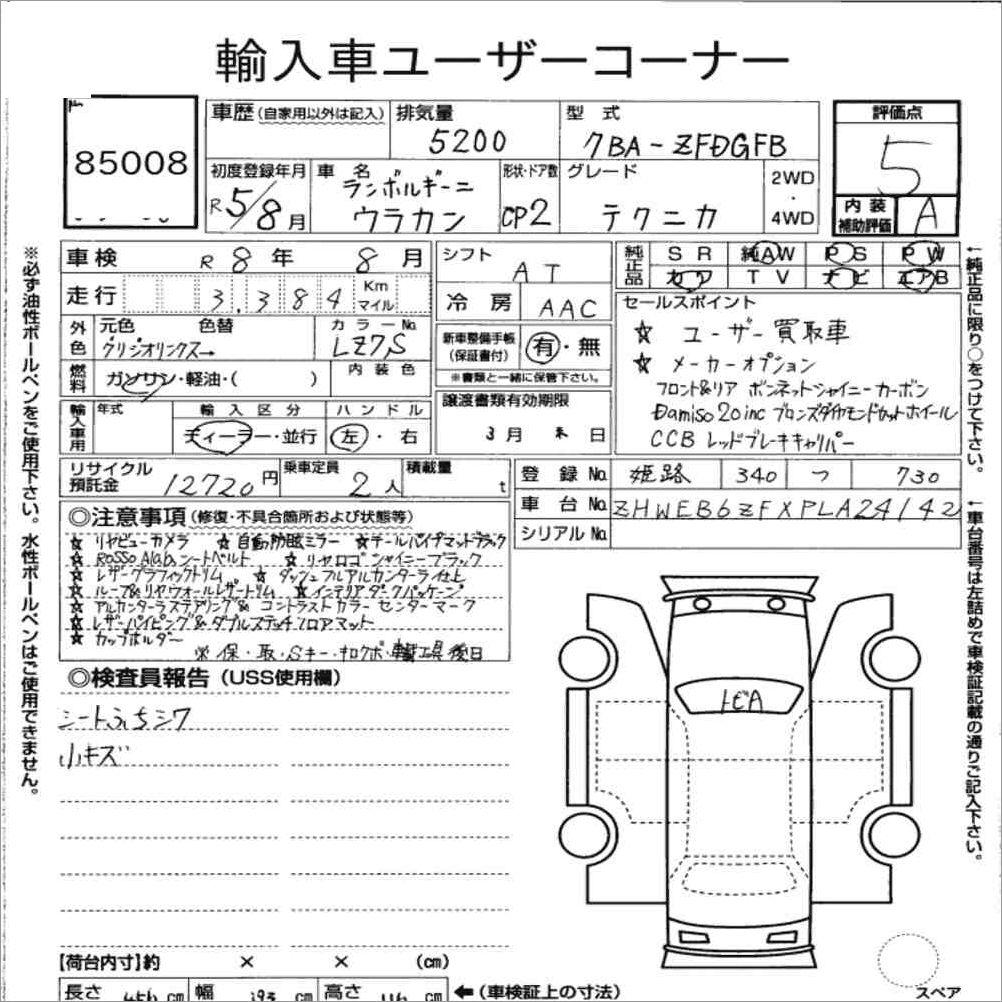 輸入車ユーザーコーナー
85008
車歴(自家用以外は記入) 排気量 5200 型式 7BA-ZFDGFB
評価点 5
内装補助評価 A
初度登録年月 R5/8月 車名 ランボルギーニ ウラカン 形状・ドア数 CP2 グレード テクニカ 2WD・4WD
車検 R8年8月
走行 3,384 Km マイル
外色 元色 色替 グリジオリンクス→ カラーNo. LZ7S
燃料 ガソリン・軽油・( ) 内装色
輸入車用 年式 輸入区分 ディーラー・並行 ハンドル 左・右
シフト AT
冷房 AAC
新車整備手帳(保証書付) 有・無
※書類と一緒に保管下さい。
譲渡書類有効期限
3月末日
純正品 SR 純AW PS PW
カワ TV ナビ エアB
セールスポイント
☆ ユーザー買取車
☆ メーカーオプション
フロント&リア ボンネットシャイニーカーボン
Damiso20inc ブロンズダイヤモンドカットホイール
CCB レッドブレーキキャリパー
リサイクル預託金 12720円 乗車定員 2人 積載量 t
登録No. 姫路 340 つ 730
車台No. ZHWEB6ZFXPLA24142
シリアルNo.
◎注意事項(修復・不具合箇所および状態等)
☆ リヤビューカメラ ☆ 自動防眩ミラー ☆テールパイプマットブラック
☆ ROSSO Alalaシートベルト ☆ リヤロゴ シャイニーブラック
☆ レザーグラフィックトリム ☆ ダッシュフルアルカンターラ仕上
☆ ルーフ&リヤウォールレザートリム ☆インテリアダークパッケージ
☆ アルカンターラステアリング& コントラストカラー センターマーク
☆ レザーパイピング&ダブルステッチフロアマット
☆ カップホルダー
※保・取・Sキー・キロクボ・車載工具後日
◎検査員報告(USS使用欄)
シートふちシワ
小キズ
トビA
【荷台内寸】約 × × (cm)
長さ 456cm 幅 193cm 高さ 116cm ←(車検証上の寸法)
スペア
※必ず油性ボールペンをご使用下さい。水性ボールペンはご使用できません。
←純正品に限り○をつけて下さい。
←車台番号は左詰めで車検証記載の通りご記入下さい。